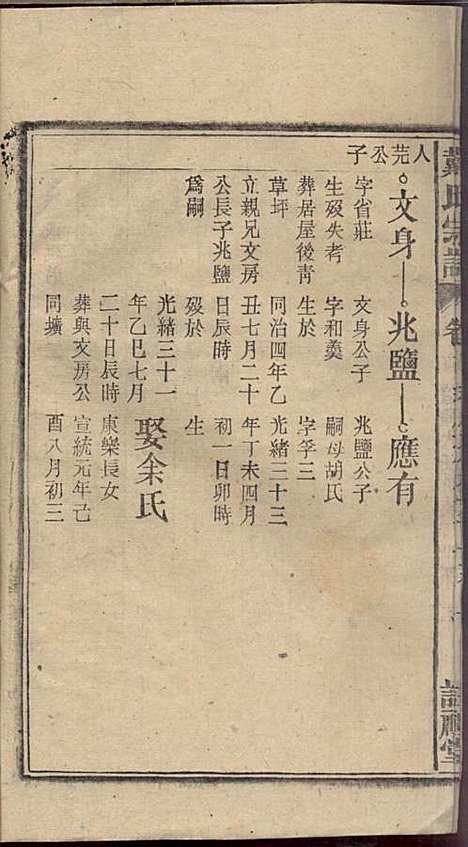 戴氏宗譜
卷
人芫公子
文身
字省莊
生歿失考
葬居屋後靑
草坪
立親兄文房
公長子兆鹽
爲嗣
兆鹽
文身公子
字和羹
生於
同治四年乙
丑七月二十
日辰時
歿於
光緒三十一
年乙巳七月
二十日辰時
葬與文房公
同壙
應有
兆鹽公子
嗣母胡氏
字孚三
光緒三十三
年丁未四月
初一日卯時
生
娶余氏
東樂長女
宣統元年己
酉八月初三